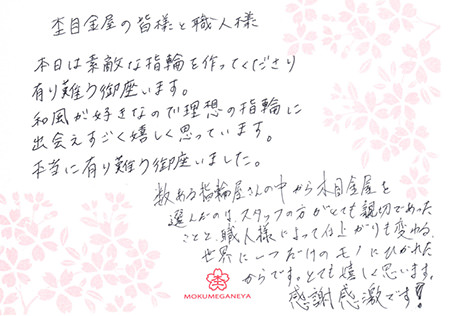 杢目金屋の皆様と職人様
本日は素敵な指輪を作ってくださり
有り難う御座います。
和風が好きなので理想の指輪に
出会えすごく嬉しく思っています。
本当に有り難う御座いました。
数ある指輪屋さんの中から木目金屋を
選んだのは、スタッフの方がとても親切であった
ことと、職人様によって仕上がりも変わる、
世界に一つだけのモノにひかれた
からです。とても嬉しく思います。
感謝感激です!
MOKUMEGANEYA